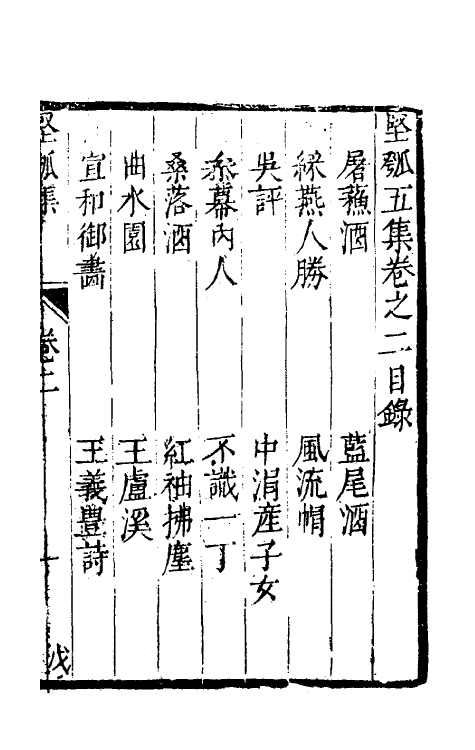 堅瓠五集卷之二目錄
屠蘇酒　藍尾酒
綵燕人勝　風流帽
吳評　中涓產子女
幕內人　不識一丁
桑落酒　紅袖拂塵
曲水園　王盧溪
宣和御畵　王義豊詩
堅瓠集　卷二　一　戊